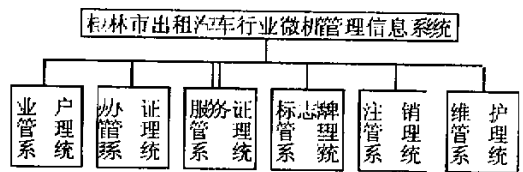 桂林市出租汽车行业微机管理信息系统
业户管理系统
办证管理系统
服务证管理系统
标志牌管理系统
注销管理系统
维护管理系统